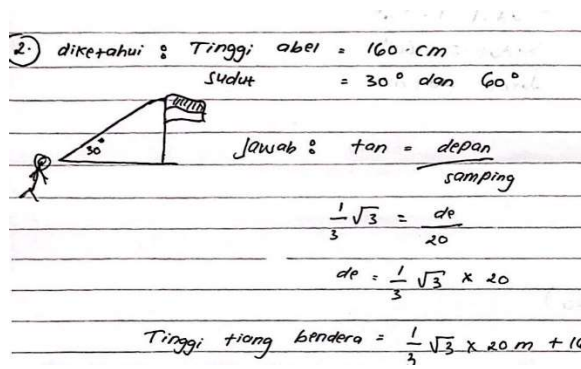 2. diketahui : Tinggi abel = 160 cm
sudut = 30° dan 60°
30°
Jawab : tan = depan / samping
1/3 √3 = de / 20
de = 1/3 √3 x 20
Tinggi tiang bendera = 1/3 √3 x 20 m +